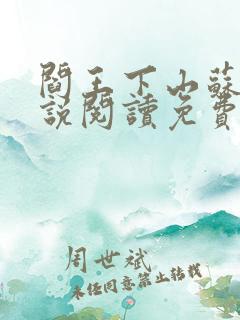 閻王下山蘇
說閱讀免費
周世斌
未經同意禁止轉載